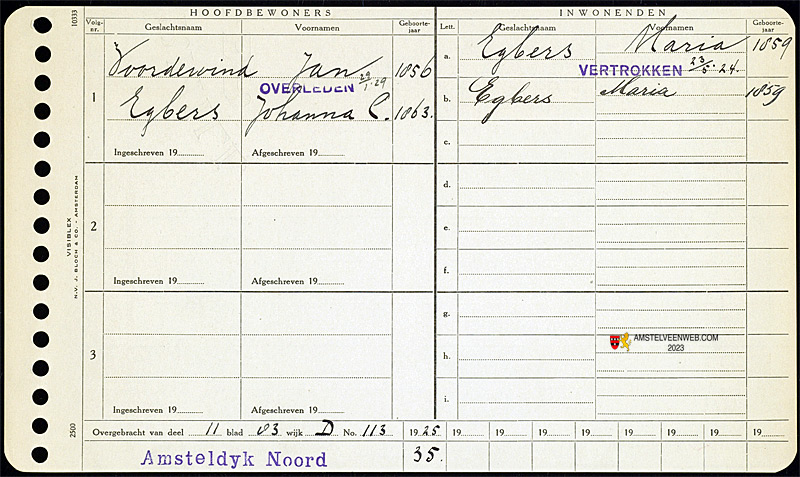 HOOFDBEWONERS
INWONENDEN
10333
Volg-nr.
Geslachtsnaam
Voornamen
Geboorte-jaar
Lett.
Geslachtsnaam
Voornamen
Geboorte-jaar
1
Voordewind Jan 1856
OVERLEDEN 29/1-29
Egbers Johanna C. 1863.
Ingeschreven 19
Afgeschreven 19
a. Egbers Maria 1859
VERTROKKEN 23/5-24.
b. Egbers Maria 1859
c.
2
Ingeschreven 19
Afgeschreven 19
d.
e.
f.
3
Ingeschreven 19
Afgeschreven 19
g.
h.
i.
VISIBLEX
N.V. J. BLOCH & CO. - AMSTERDAM
2500
AMSTELVEENWEB.COM
2023
Overgebracht van deel 11 blad 03 wijk D No. 113
1925 19 19 19 19 19 19 19 19
Amsteldyk Noord
35.